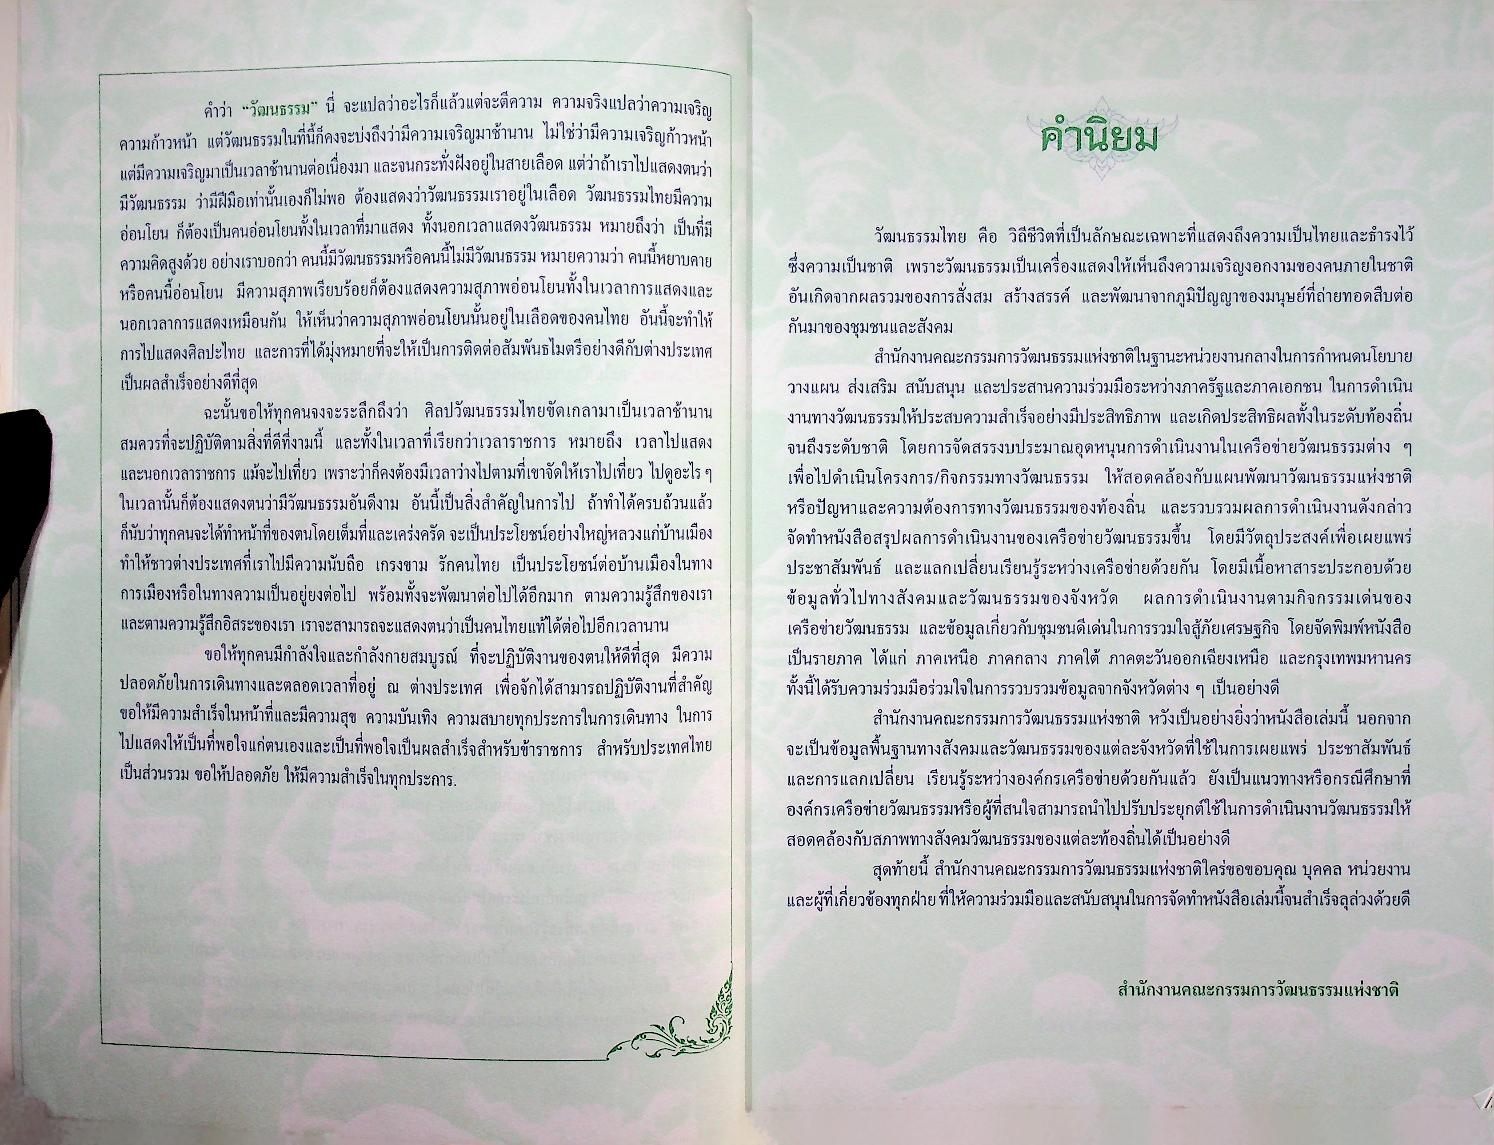 คำว่า “วัฒนธรรม” นี่ จะแปลว่าอะไรก็แล้วแต่จะตีความ ความจริงแปลว่าความเจริญ
ความก้าวหน้า แต่วัฒนธรรมในที่นี้ก็คงจะบ่งถึงว่ามีความเจริญมาช้านาน ไม่ใช่ว่ามีความเจริญก้าวหน้า
แต่มีความเจริญมาเป็นเวลาช้านานต่อเนื่องมา และจนกระทั่งฝังอยู่ในสายเลือด แต่ว่าถ้าเราไปแสดงตนว่า
มีวัฒนธรรม ว่ามีฝีมือเท่านั้นเองก็ไม่พอ ต้องแสดงว่าวัฒนธรรมเราอยู่ในเลือด วัฒนธรรมไทยมีความ
อ่อนโยน ก็ต้องเป็นคนอ่อนโยนทั้งในเวลาที่มาแสดง ทั้งนอกเวลาแสดงวัฒนธรรม หมายถึงว่า เป็นที่มี
ความคิดสูงด้วย อย่างเราบอกว่า คนนี้มีวัฒนธรรมหรือคนนี้ไม่มีวัฒนธรรม หมายความว่า คนนี้หยาบคาย
หรือคนนี้อ่อนโยน มีความสุภาพเรียบร้อยก็ต้องแสดงความสุภาพอ่อนโยนทั้งในเวลาการแสดงและ
นอกเวลาการแสดงเหมือนกัน ให้เห็นว่าความสุภาพอ่อนโยนนั้นอยู่ในเลือดของคนไทย อันนี้จะทำให้
การไปแสดงศิลปะไทย และการที่ได้มุ่งหมายที่จะให้เป็นการติดต่อสัมพันธไมตรีอย่างดีกับต่างประเทศ
เป็นผลสำเร็จอย่างดีที่สุด
ฉะนั้นขอให้ทุกคนจงจะระลึกถึงว่า ศิลปวัฒนธรรมไทยขัดเกลามาเป็นเวลาช้านาน
สมควรที่จะปฏิบัติตามสิ่งที่ดีที่งามนี้ และทั้งในเวลาที่เรียกว่าเวลาราชการ หมายถึง เวลาไปแสดง
และนอกเวลาราชการ แม้จะไปเที่ยว เพราะว่าก็คงต้องมีเวลาว่างไปตามที่เขาจัดให้เราไปเที่ยว ไปดูอะไร ๆ
ในเวลานั้นก็ต้องแสดงตนว่ามีวัฒนธรรมอันดีงาม อันนี้เป็นสิ่งสำคัญในการไป ถ้าทำได้ครบถ้วนแล้ว
ก็นับว่าทุกคนจะได้ทำหน้าที่ของตนโดยเต็มที่และเคร่งครัด จะเป็นประโยชน์อย่างใหญ่หลวงแก่บ้านเมือง
ทำให้ชาวต่างประเทศที่เราไปมีความนับถือ เกรงขาม รักคนไทย เป็นประโยชน์ต่อบ้านเมืองในทาง
การเมืองหรือในทางความเป็นอยู่ยงต่อไป พร้อมทั้งจะพัฒนาต่อไปได้อีกมาก ตามความรู้สึกของเรา
และตามความรู้สึกอิสระของเรา เราจะสามารถจะแสดงตนว่าเป็นคนไทยแท้ได้ต่อไปอีกเวลานาน
ขอให้ทุกคนมีกำลังใจและกำลังกายสมบูรณ์ ที่จะปฏิบัติงานของตนให้ดีที่สุด มีความ
ปลอดภัยในการเดินทางและตลอดเวลาที่อยู่ ณ ต่างประเทศ เพื่อจักได้สามารถปฏิบัติงานที่สำคัญ
ขอให้มีความสำเร็จในหน้าที่และมีความสุข ความบันเทิง ความสบายทุกประการในการเดินทาง ในการ
ไปแสดงให้เป็นที่พอใจแก่ตนเองและเป็นที่พอใจเป็นผลสำเร็จสำหรับข้าราชการ สำหรับประเทศไทย
เป็นส่วนรวม ขอให้ปลอดภัย ให้มีความสำเร็จในทุกประการ.
คำนิยม
วัฒนธรรมไทย คือ วิถีชีวิตที่เป็นลักษณะเฉพาะที่แสดงถึงความเป็นไทยและธำรงไว้
ซึ่งความเป็นชาติ เพราะวัฒนธรรมเป็นเครื่องแสดงให้เห็นถึงความเจริญงอกงามของคนภายในชาติ
อันเกิดจากผลรวมของการสั่งสม สร้างสรรค์ และพัฒนาจากภูมิปัญญาของมนุษย์ที่ถ่ายทอดสืบต่อ
กันมาของชุมชนและสังคม
สำนักงานคณะกรรมการวัฒนธรรมแห่งชาติในฐานะหน่วยงานกลางในการกำหนดนโยบาย
วางแผน ส่งเสริม สนับสนุน และประสานความร่วมมือระหว่างภาครัฐและภาคเอกชน ในการดำเนิน
งานทางวัฒนธรรมให้ประสบความสำเร็จอย่างมีประสิทธิภาพ และเกิดประสิทธิผลทั้งในระดับท้องถิ่น
จนถึงระดับชาติ โดยการจัดสรรงบประมาณอุดหนุนการดำเนินงานในเครือข่ายวัฒนธรรมต่าง ๆ
เพื่อไปดำเนินโครงการ/กิจกรรมทางวัฒนธรรม ให้สอดคล้องกับแผนพัฒนาวัฒนธรรมแห่งชาติ
หรือปัญหาและความต้องการทางวัฒนธรรมของท้องถิ่น และรวบรวมผลการดำเนินงานดังกล่าว
จัดทำหนังสือสรุปผลการดำเนินงานของเครือข่ายวัฒนธรรมขึ้น โดยมีวัตถุประสงค์เพื่อเผยแพร่
ประชาสัมพันธ์ และแลกเปลี่ยนเรียนรู้ระหว่างเครือข่ายด้วยกัน โดยมีเนื้อหาสาระประกอบด้วย
ข้อมูลทั่วไปทางสังคมและวัฒนธรรมของจังหวัด ผลการดำเนินงานตามกิจกรรมเด่นของ
เครือข่ายวัฒนธรรม และข้อมูลเกี่ยวกับชุมชนดีเด่นในการรวมใจสู้ภัยเศรษฐกิจ โดยจัดพิมพ์หนังสือ
เป็นรายภาค ได้แก่ ภาคเหนือ ภาคกลาง ภาคใต้ ภาคตะวันออกเฉียงเหนือ และกรุงเทพมหานคร
ทั้งนี้ได้รับความร่วมมือร่วมใจในการรวบรวมข้อมูลจากจังหวัดต่าง ๆ เป็นอย่างดี
สำนักงานคณะกรรมการวัฒนธรรมแห่งชาติ หวังเป็นอย่างยิ่งว่าหนังสือเล่มนี้ นอกจาก
จะเป็นข้อมูลพื้นฐานทางสังคมและวัฒนธรรมของแต่ละจังหวัดที่ใช้ในการเผยแพร่ ประชาสัมพันธ์
และการแลกเปลี่ยน เรียนรู้ระหว่างองค์กรเครือข่ายด้วยกันแล้ว ยังเป็นแนวทางหรือกรณีศึกษาที่
องค์กรเครือข่ายวัฒนธรรมหรือผู้ที่สนใจสามารถนำไปปรับประยุกต์ใช้ในการดำเนินงานวัฒนธรรมให้
สอดคล้องกับสภาพทางสังคมวัฒนธรรมของแต่ละท้องถิ่นได้เป็นอย่างดี
สุดท้ายนี้ สำนักงานคณะกรรมการวัฒนธรรมแห่งชาติใคร่ขอขอบคุณ บุคคล หน่วยงาน
และผู้ที่เกี่ยวข้องทุกฝ่าย ที่ให้ความร่วมมือและสนับสนุนในการจัดทำหนังสือเล่มนี้จนสำเร็จลุล่วงด้วยดี
สำนักงานคณะกรรมการวัฒนธรรมแห่งชาติ